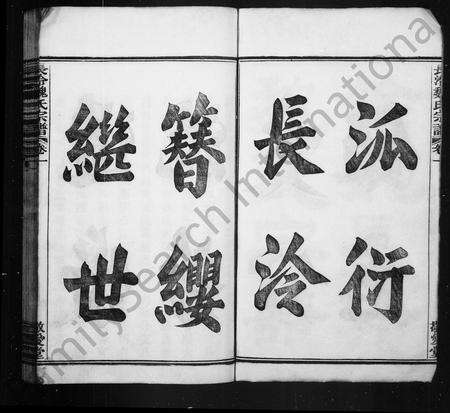 泒衍
長泠
簪纓
繼世
長泠魏氏宗譜 卷一
長泠魏氏宗譜 卷一
FamilySearch International